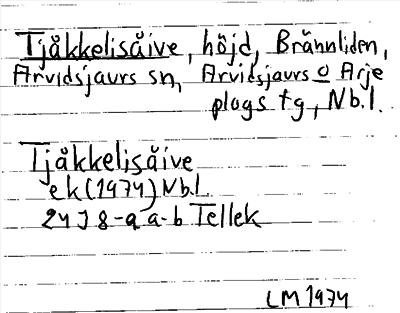 Tjåkkelisåive, höjd, Brännliden,
Arvidsjaurs sn, Arvidsjaurs o Arje
plogs tg, Nb.l.
Tjåkkelisåive
ek (1974) Nb.l.
24J 8-9 a-b Tellek
LM 1974